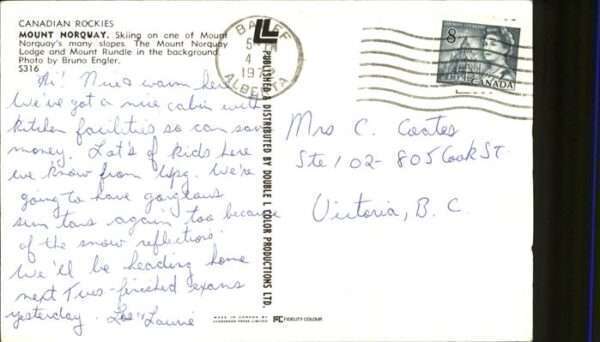 CANADIAN ROCKIES
MOUNT NORQUAY. Skiing on one of Mount
Norquay's many slopes. The Mount Norquay
Lodge and Mount Rundle in the background.
Photo by Bruno Engler.
S316
Hi! Nice & warm here
We've got a nice cabin with
kitchen facilities so can save
money. Lot's of kids here
we know from Wpg. We're
going to have gorgeous
sun tans again too because
of the snow reflections.
We'll be heading home
next Tues - finished exams
yesterday. Laurie
LL
PUBLISHED, DISTRIBUTED BY DOUBLE L COLOR PRODUCTIONS LTD.
BANFF
5
4
197
ALBERTA
8
CANADA
Mrs C. Coates
Ste 102 - 805 Cook St.
Victoria, B. C.
MADE IN CANADA BY
PRESS LIMITED
FC FIDELITY COLOUR